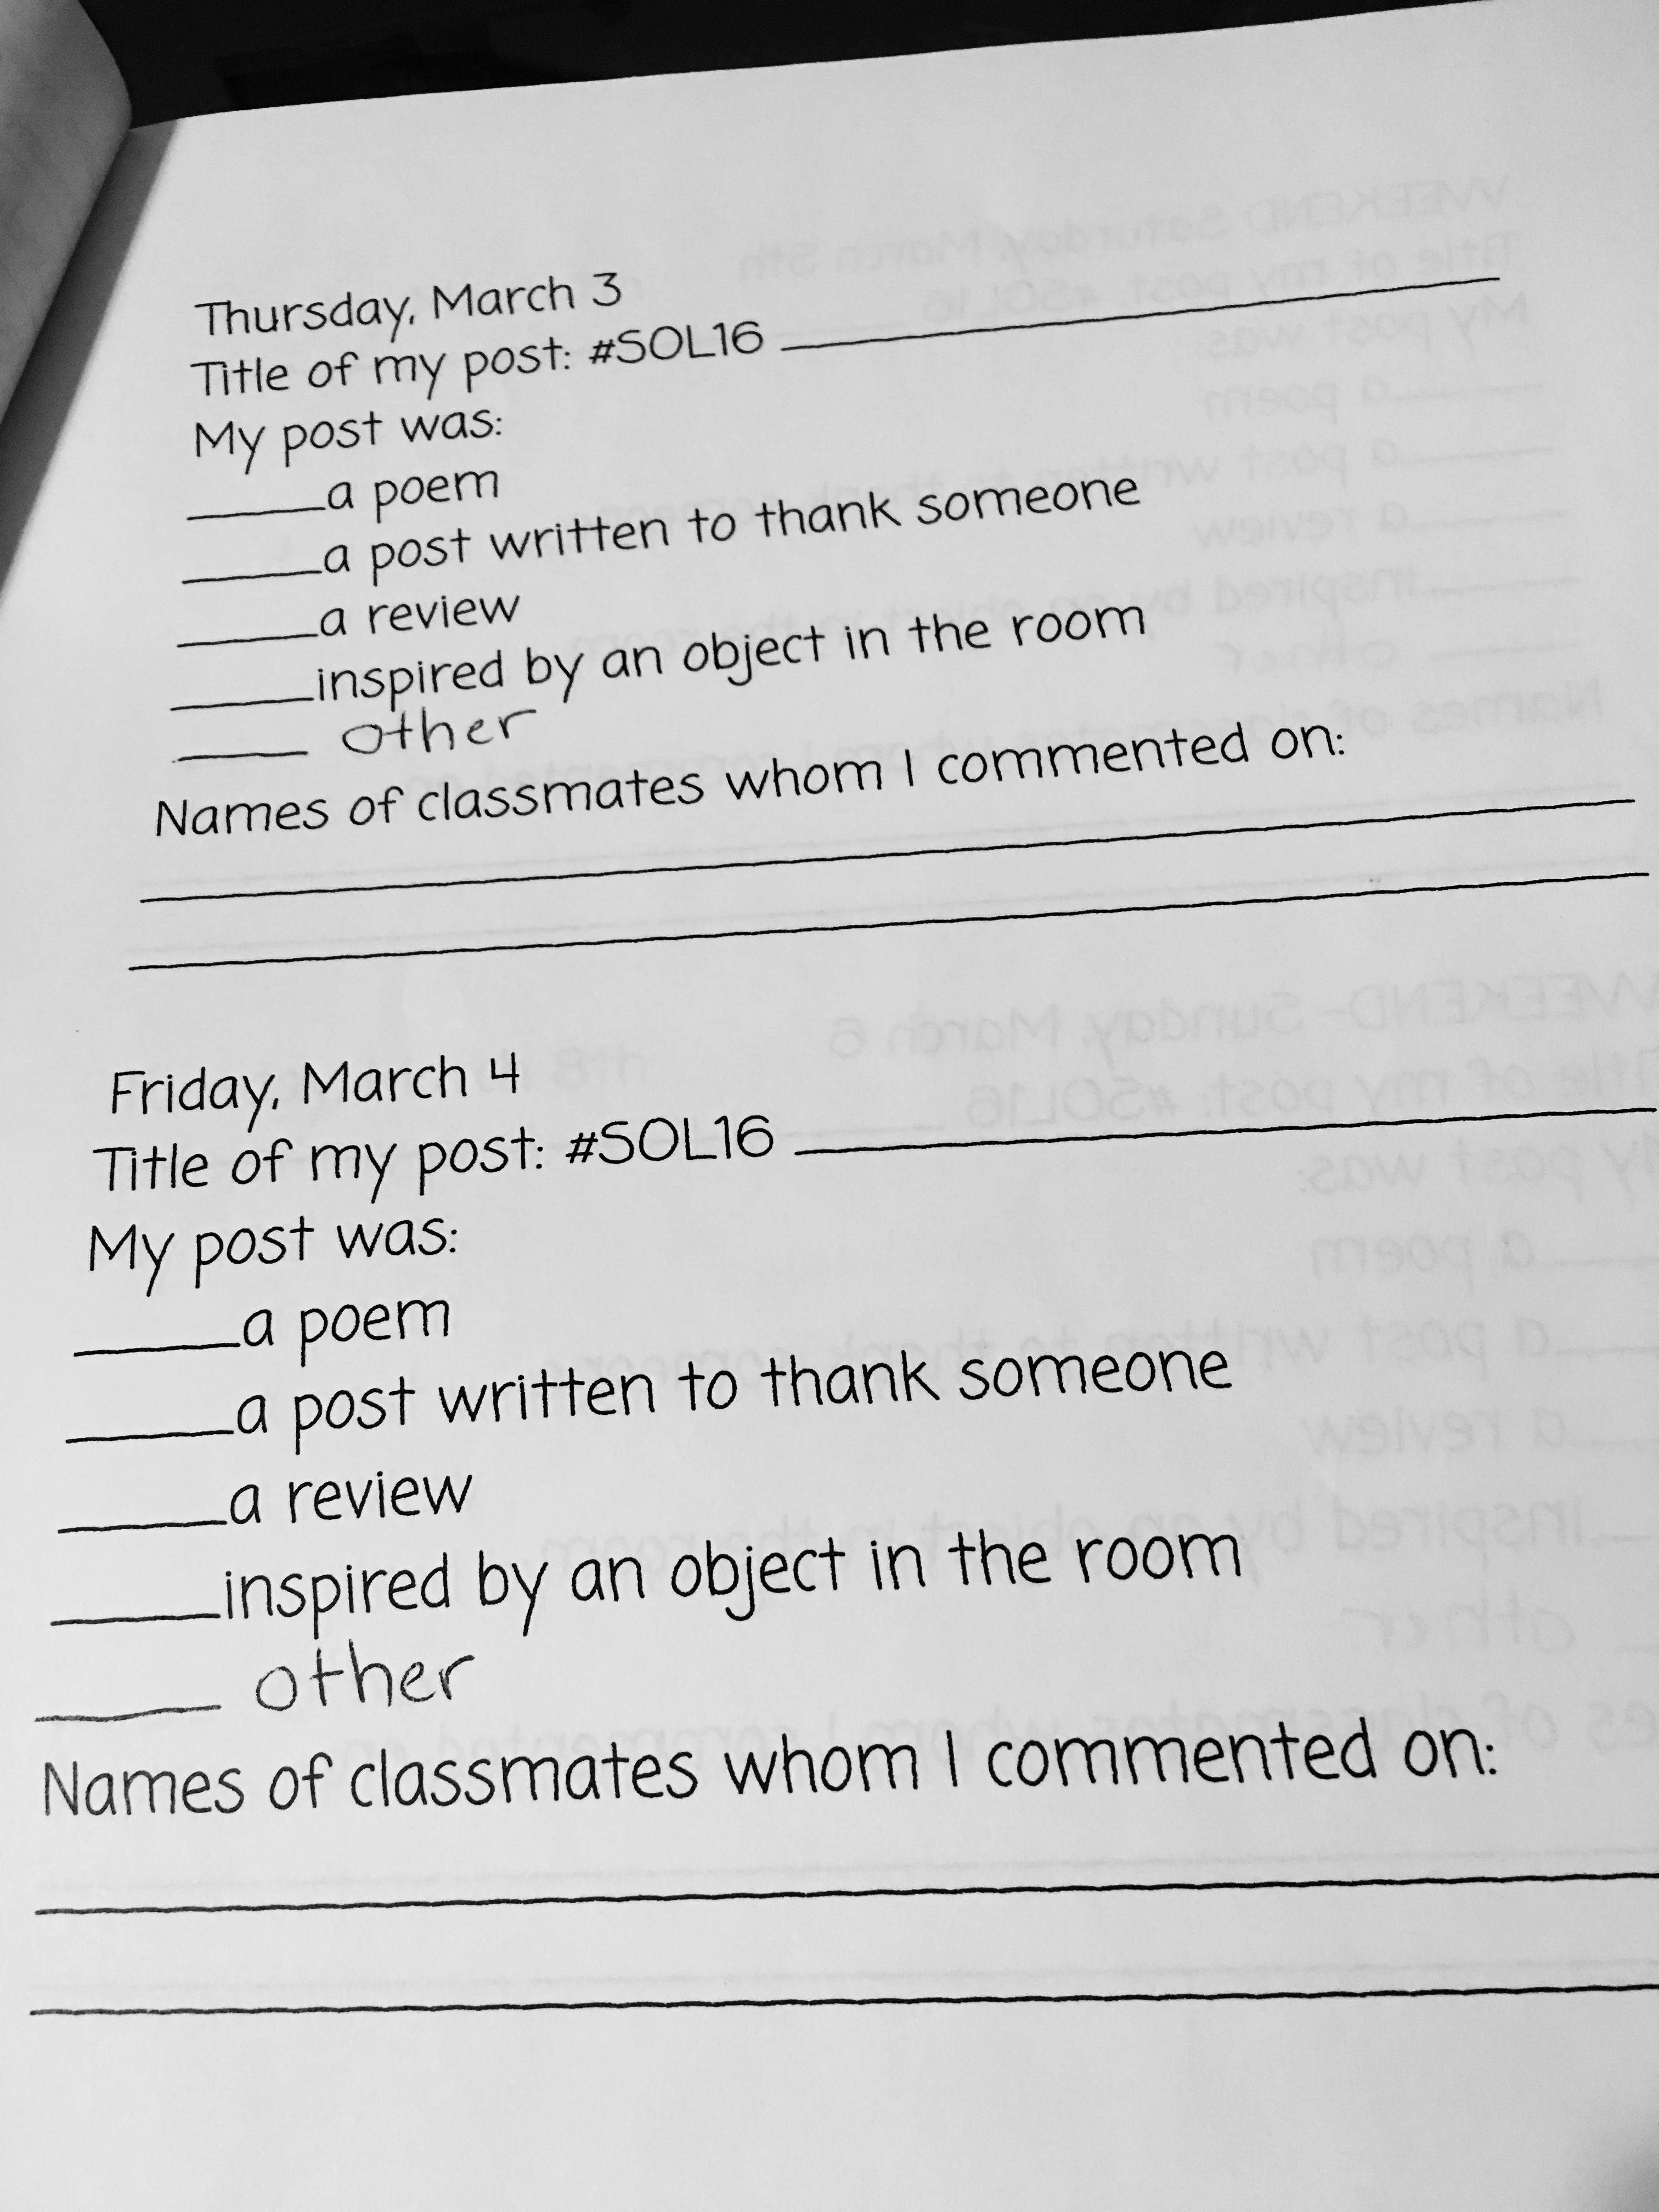 Thursday, March 3
Title of my post: #SOL16 ____________________
My post was:
_____a poem
_____a post written to thank someone
_____a review
_____inspired by an object in the room
____ other
Names of classmates whom I commented on:
Friday, March 4
Title of my post: #SOL16 ____________________
My post was:
_____a poem
_____a post written to thank someone
_____a review
_____inspired by an object in the room
____ other
Names of classmates whom I commented on: